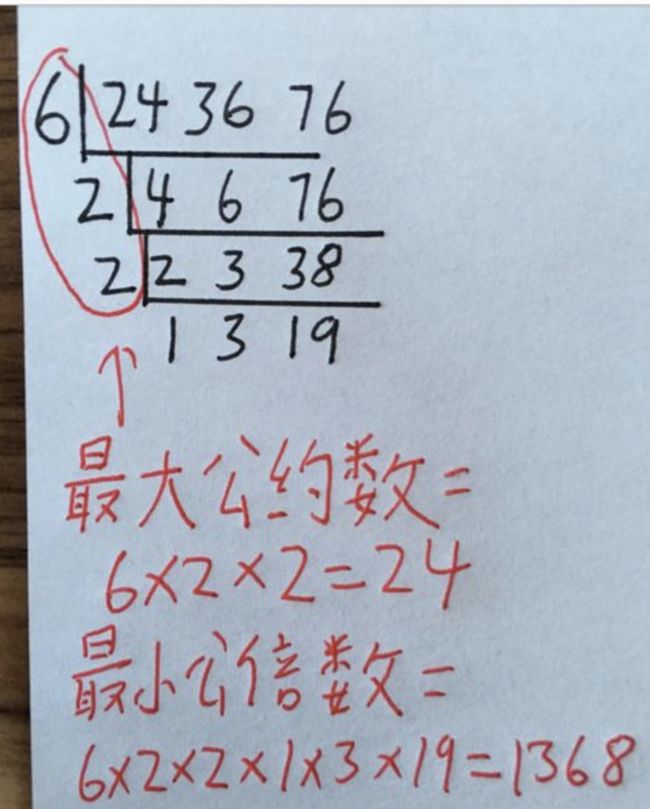 6 24 36 76
2 4 6 76
2 2 3 38
1 3 19
最大公约数=
6×2×2=24
最小公倍数=
6×2×2×1×3×19=1368